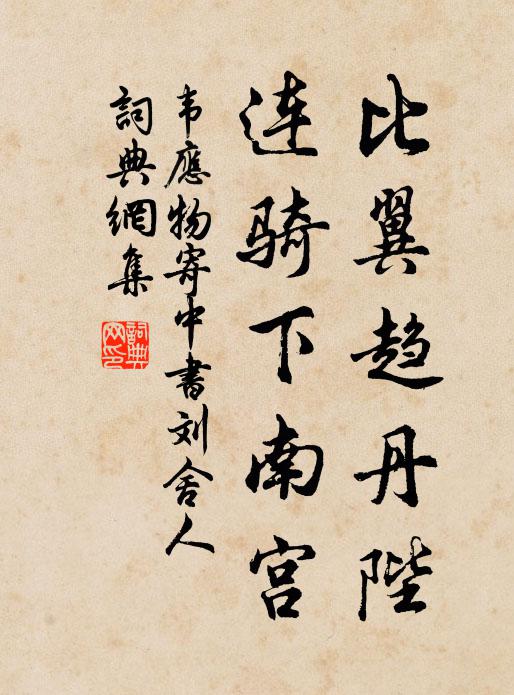 比翼趋丹陛
连骑下南宫
韦應物寄中書刘舍人
詞典網集
詞典网印